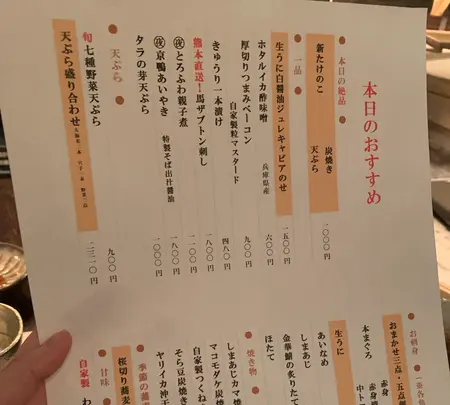 本日のおすすめ
本日の絶品
新たけのこ 炭焼き 天ぷら 一〇〇〇円
一品
生うに白醤油ジュレキャビアのせ 一五〇〇円
ホタルイカ酢味噌 兵庫県産 六〇〇円
厚切りつまみベーコン 自家製粒マスタード 九〇〇円
きゅうり一本漬け 四八〇円
熊本直送!馬ザブトン刺し 一八〇〇円
夜とろふわ親子煮 一一〇〇円
夜京鴨あいやき 特製そば出汁醤油 一八〇〇円
タラの芽天ぷら 一〇〇〇円
天ぷら
旬七種野菜天ぷら 九〇〇円
天ぷら盛り合わせ 二三一〇円
お刺身
おまかせ三点・五点
本まぐろ 赤身 中ト
生うに
あいなめ
しまあじ
金華鯖の炙りたて
ほたて
焼き物
しまあじカマ焼
マコモダケ炭焼
自家製つくね
そら豆炭焼き
ヤリイカ沖
季節の蕎麦
桜切り蕎麦
甘味
自家製 わ